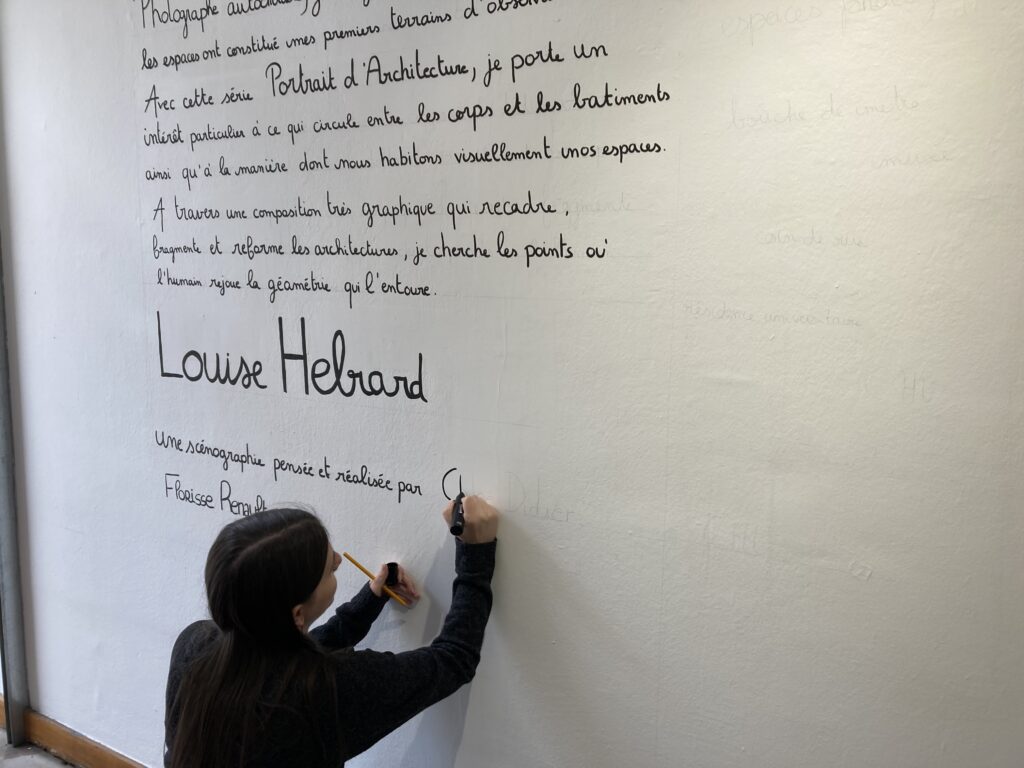 Photographe
les espaces ont constitué mes premiers terrains d'observa
Avec cette série Portrait d'Architecture, je porte un
intérêt particulier à ce qui circule entre les corps et les batiments
ainsi qu'à la manière dont nous habitons visuellement nos espaces.
A travers une composition très graphique qui recadre,
fragmente et reforme les architectures, je cherche les points où
l'humain rejoue la géométrie qui l'entoure.
Louise Hebrard
une scénographie pensée et réalisée par C Didier
Florisse Renault
bouche de metro
grande rue
résidence universitaire